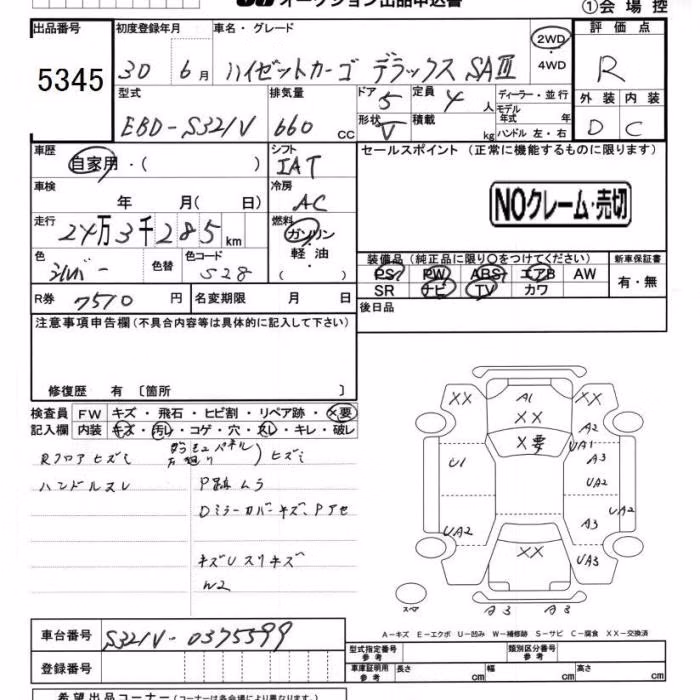 オークション出品申込書
①会場控
出品番号 初度登録年月 車名・グレード 2WD ・4WD 評価点
5345 30 6月 ハイゼットカーゴ デラックス SAⅢ R
型式 排気量 ドア 5 定員 4人 ディーラー・並行 外装 内装
EBD-S321V 660cc 形状 V 積載 kg モデル年式 年 ハンドル 左・右 D C
車歴 自家用・( ) シフト IAT セールスポイント (正常に機能するものに限ります)
車検 年 月( 日) 冷房 AC
NOクレーム・売切
走行 24万3千285km 燃料 ガソリン・軽油・( )
色 シルバー 色替 色コード S28
装備品 (純正品に限り○をつけてください) 新車保証書
PS PW ABS エアB AW 有・無
SR ナビ TV カワ
R券 7510円 名変期限 月 日
後日品
注意事項申告欄 (不具合内容等は具体的に記入して下さい)
修復歴 有 〔箇所 〕
検査員 FW キズ・飛石・ヒビ割・リペア跡・×要
記入欄 内装 キズ・汚レ・コゲ・穴・スレ・キレ・破レ
Rフロアヒズミ
ハンドルスレ
パネル ヒズミ
P跡ムラ
Dミラーカバーキズ、Pアセ
キズUスリキズ
W2
XX A1 XX XX
A2
×要 UA1
U1 A3
UA2
UA2 A3 UA2
XX UA3
スペア A3 A3
A-キズ E-エクボ U-凹み W-補修跡 S-サビ C-腐食 XX-交換済
車台番号 S321V-0375599
登録番号
型式指定番号 参考 類別区分番号 参考
車庫証明用 参考 長さ cm 幅 cm 高さ cm
希望出品コーナー (コーナーは各会場により異なります。)